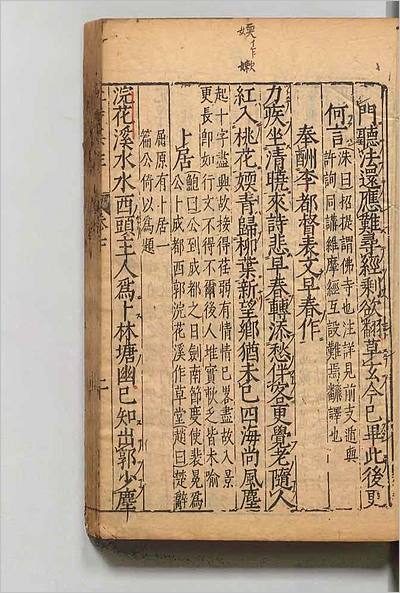 嫩
門聽法還應難尋經剩欲翻草玄今已畢此後更
何言
洙曰招提謂佛寺也注詳見前支遁與
許詢同講維摩經互設難焉翻譯也
奉酬李都督表丈早春作
力疾坐清曉來詩悲早春轉添愁伴客更覺老隨人
紅入桃花嫰青歸柳葉新望鄉猶未已四海尚風塵
起十字盡興故接得荏弱有情情已畧盡故入景
更長卽如行文不得不爾後人堆實歇乏皆未喻
卜居
鮑曰公到成都之日劍南節度使裴冕爲
公卜成都西郭浣花溪作草堂趙曰楚辭
屈原有卜居一
篇公倚以爲題
浣花溪水水西頭主人爲卜林塘幽已知出郭少塵
二